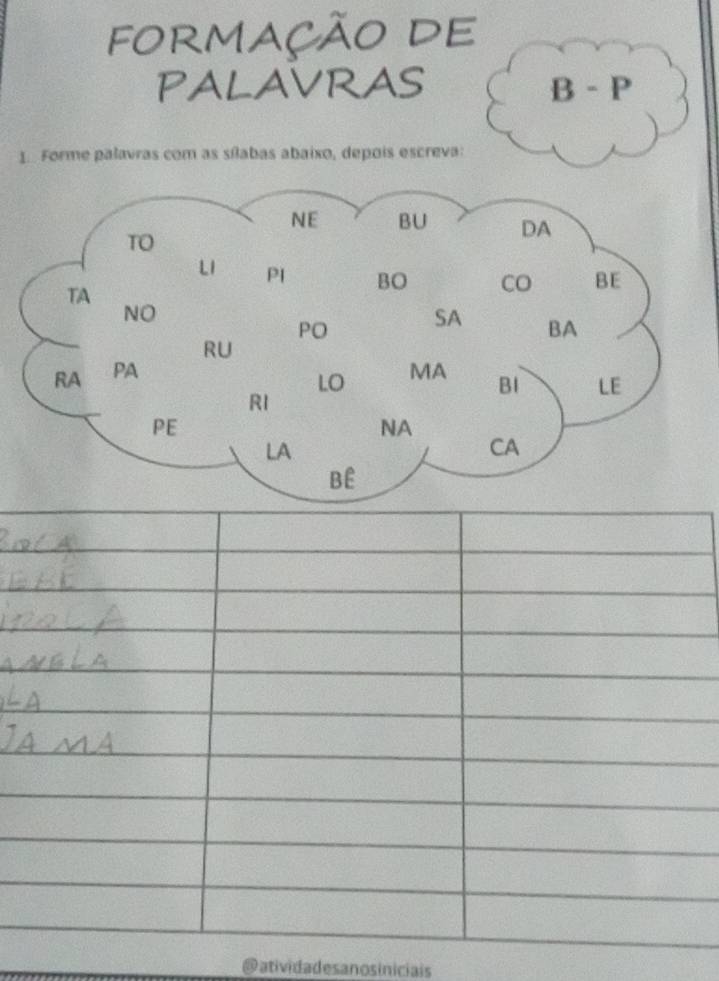 FORMAÇÃO DE
PALAVRAS
B - P
1. Forme palavras com as sílabas abaixo, depois escreva:
NE BU DA
TO
LI PI BO CO BE
TA
NO PO SA BA
RU
RA PA LO MA BI LE
RI
PE NA
LA CA
BÊ
BOCA
EBÊ
IPOCA
ANELA
LA
JAMA
@atividadesanosiniciais